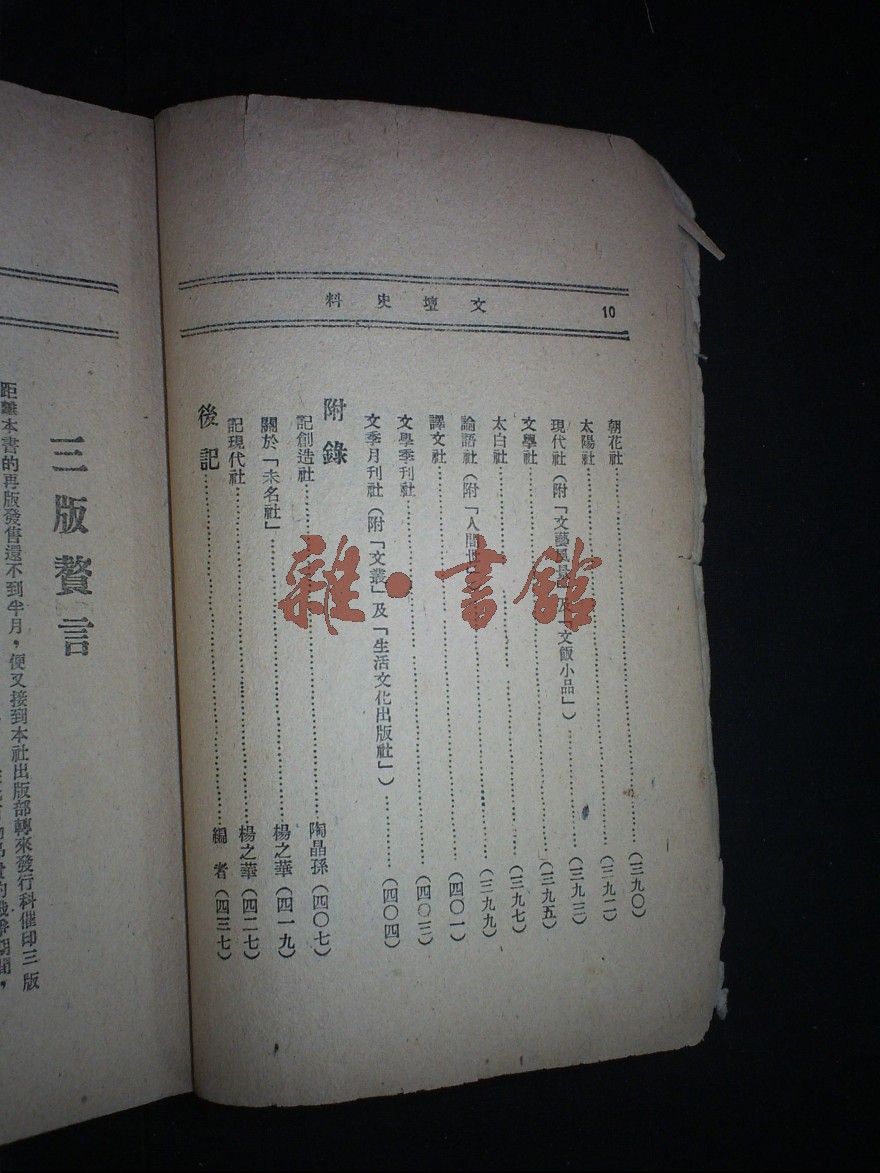 文壇史料 10
朝花社……(三九〇)
太陽社……(三九二)
現代社(附「文藝風景」及「文飯小品」)……(三九三)
文學社……(三九五)
太白社……(三九七)
論語社(附「人間世」……(三九九)
譯文社……(四〇一)
文學季刊社……(四〇三)
文季月刊社(附「文叢」及「生活文化出版社」)……(四〇四)
附錄
記創造社……陶晶孫(四〇七)
關於「未名社」……楊之華(四一九)
記現代社……楊之華(四二七)
後記……編者(四三七)
三版贅言
距離本書的再版發售還不到半月，便又接到本社出版部轉來發行科催印三版
的戰爭期間，
雜·書館